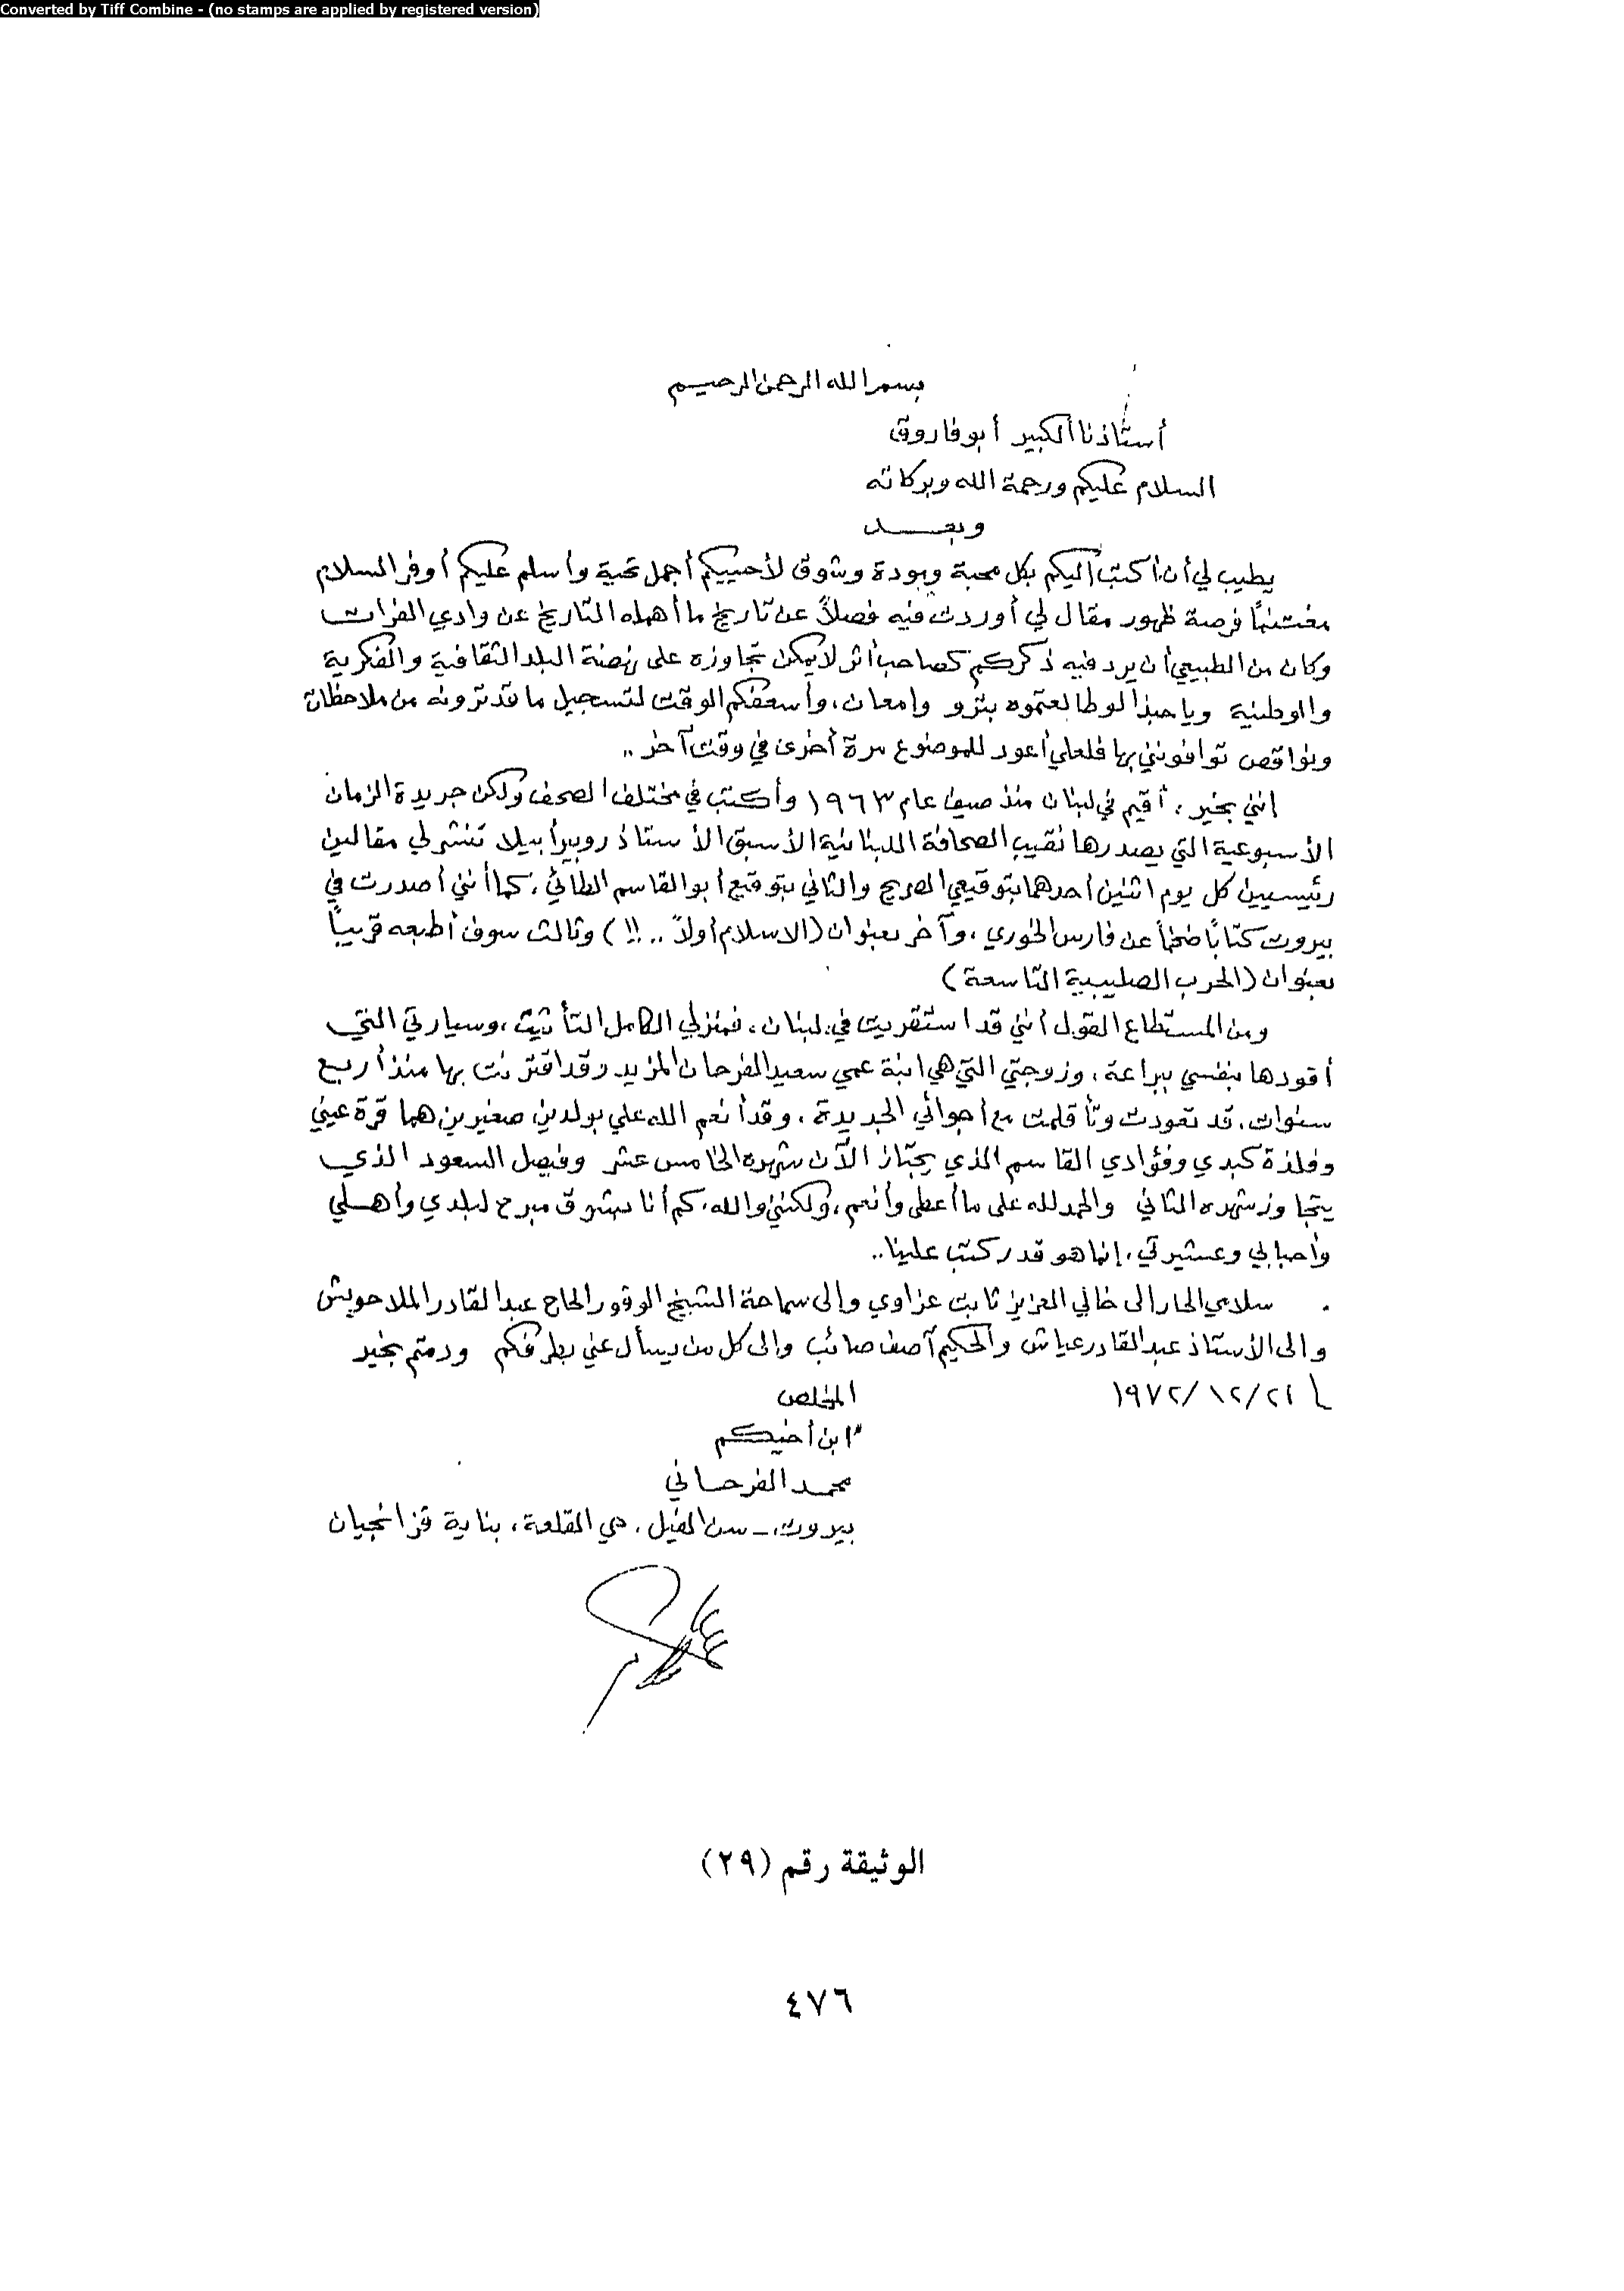 Converted by Tiff Combine - (no stamps are applied by registered version)
بسم الله الرحمن الرحيم
أستاذنا الكبير أبو فاروق
السلام عليكم ورحمة الله وبركاته
وبعد
يطيب لي أن أكتب اليكم بكل محبة ومودة وشوق لأحييكم أجمل تحية وأسلم عليكم أوفر السلام
مغتنماً فرصة ظهور مقال لي أوردت فيه فصلاً عن تاريخ ما أهمله التاريخ عن وادي الفرات
وكان من الطبيعي أن يرد فيه ذكركم كصاحب أثر لا يمكن تجاوزه على نهضة البلد الثقافية والفكرية
والوطنية وياحبذا لو طالعتموه بتروٍ وامعان، وأسعفكم الوقت لتسجيل ما قد ترونه من ملاحظات
ونواقص توافونني بها فلعلي أعود للموضوع مرة أخرى في وقت آخر ..
انني بخير، أقيم في لبنان منذ صيف عام ١٩٦٣ وأكتب في مختلف الصحف ولكن جريدة الزمان
الأسبوعية التي يصدرها نقيب الصحافة اللبنانية الأسبق الأستاذ روبير أبيلا تنشر لي مقالين
رئيسيين كل يوم اثنين أحدهما بتوقيعي الصريح والثاني بتوقيع أبو القاسم الطائي، كما أنني أصدرت في
بيروت كتاباً ضخماً عن فارس الخوري، وآخر بعنوان (الاسلام أولاً .. !!) وثالث سوف أطبعه قريباً
بعنوان (الحرب الصليبية التاسعة)
ومن المستطاع القول أنني قد استقريت في لبنان، فمنزلي الكامل التأثيث، وسيارتي التي
أقودها بنفسي ببراعة، وزوجتي التي هي ابنة عمي سعيد الفرحان المزيد وقد اقترنت بها منذ أربع
سنوات، قد تعودت وتأقلمت مع أجوائي الجديدة، وقد أنعم الله علي بولدين صغيرين هما قرة عيني
وفلذة كبدي وفؤادي القاسم الذي يجتاز الآن شهره الخامس عشر وفيصل السعود الذي
يتجاوز شهره الثاني والحمد لله على ما أعطى وأنعم، ولكنني والله، كم أنا بشوق مبرح لبلدي وأهلي
وأحبابي وعشيرتي، إنما هو قدر كتب علينا..
سلامي الحار الى خالي العزيز ثابت عزاوي والى سماحة الشيخ الوقور الحاج عبد القادر الملا حويش
والى الأستاذ عبد القادر عياش والحكيم آصف صائب والى كل من يسأل عني بطرفكم ودمتم بخير
١٩٧٢/١٢/٢١
المخلص
ابن أخيكم
محمد الفرحاني
بيروت - سن الفيل، حي القلعة، بناية قزانجيان
الوثيقة رقم (٢٩)
٤٧٦